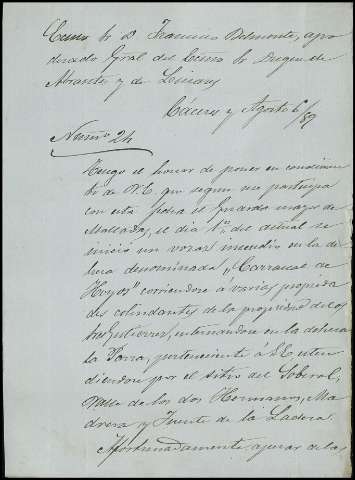 Excmo Sr D. Francisco Belmonte, apo
derado Gral del Excmo Sr Duque de
Abrantes y de Linares
Cáceres y Agosto 6/89
Numo 24
Tengo el honor de poner en conocimien
to de V.E. que segun me participa
con esta fecha el Guarda mayor de
Mallada, el dia 1º, del actual se
inició un voraz incendio en la de
hesa denominada, "Carrascal de
Hoyos" corriendose á varias propieda
des colindantes de la propiedad de
Gutierrez, internandose en la dehesa
la Parra, perteneciente á S.E. esten
diendose por el sitio del Soberal,
Valle de los dos Hermanos, Ma
drera y Fuente de la Ladera.
Afortunadamente apesar de las